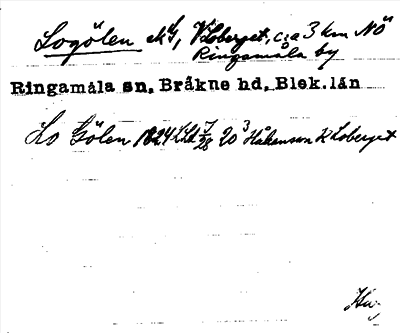 Logölen ök 4, V. Loberget, c:a 3 km NÖ
Ringamåla by
Ringamåla sn. Bråkne hd. Blek. län
Lo Gölen 1824 7/28 20 3 Håkansson K Loberget